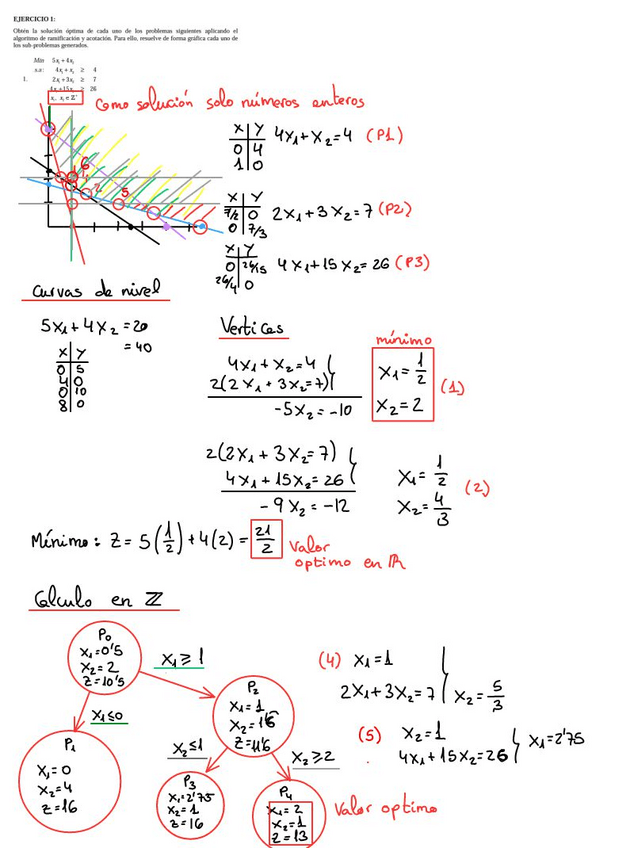 EJERCICIO 1:
Obtén la solución óptima de cada uno de los problemas siguientes aplicando el
algoritmo de ramificación y acotación. Para ello, resuelve de forma gráfica cada uno de
los sub-problemas generados.
Min 5x₁ + 4x₂
s.a: 4x₁ + x₂ ≥ 4
1. 2x₁ + 3x₂ ≥ 7
4x₁ + 15x₂ ≥ 26
x₁, x₂ ∈ Z⁺
Como solución solo números enteros
X Y
0 4
1 0
4X₁+X₂=4 (P1)
X Y
7/2 0
0 7/3
2X₁+3X₂=7 (P2)
X Y
0 26/15
26/4 0
4X₁+15X₂=26 (P3)
6
5
Curvas de nivel
5X₁+4X₂=20
=40
X Y
0 5
4 0
0 10
8 0
Vertices
4X₁+X₂=4
2(2X₁+3X₂=7)
-5X₂=-10
mínimo
X₁=1/2
X₂=2
(1)
2(2X₁+3X₂=7)
4X₁+15X₂=26
-9X₂=-12
X₁=1/2
X₂=4/3
(2)
Mínimo: Z=5(1/2)+4(2)=21/2
Valor
optimo en ℝ
Calculo en ℤ
P₀
X₁=0'5
X₂=2
Z=10'5
X₁≥1
X₁≤0
P₁
X₁=0
X₂=4
Z=16
P₂
X₁=1
X₂=1'6
Z=11'6
X₂≤1
X₂≥2
P₃
X₁=2'75
X₂=1
Z=16
P₄
X₁=2
X₂=1
Z=13
Valor optimo
(4) X₁=1
2X₁+3X₂=7
X₂=5/3
(5) X₂=1
4X₁+15X₂=26
X₁=2'75